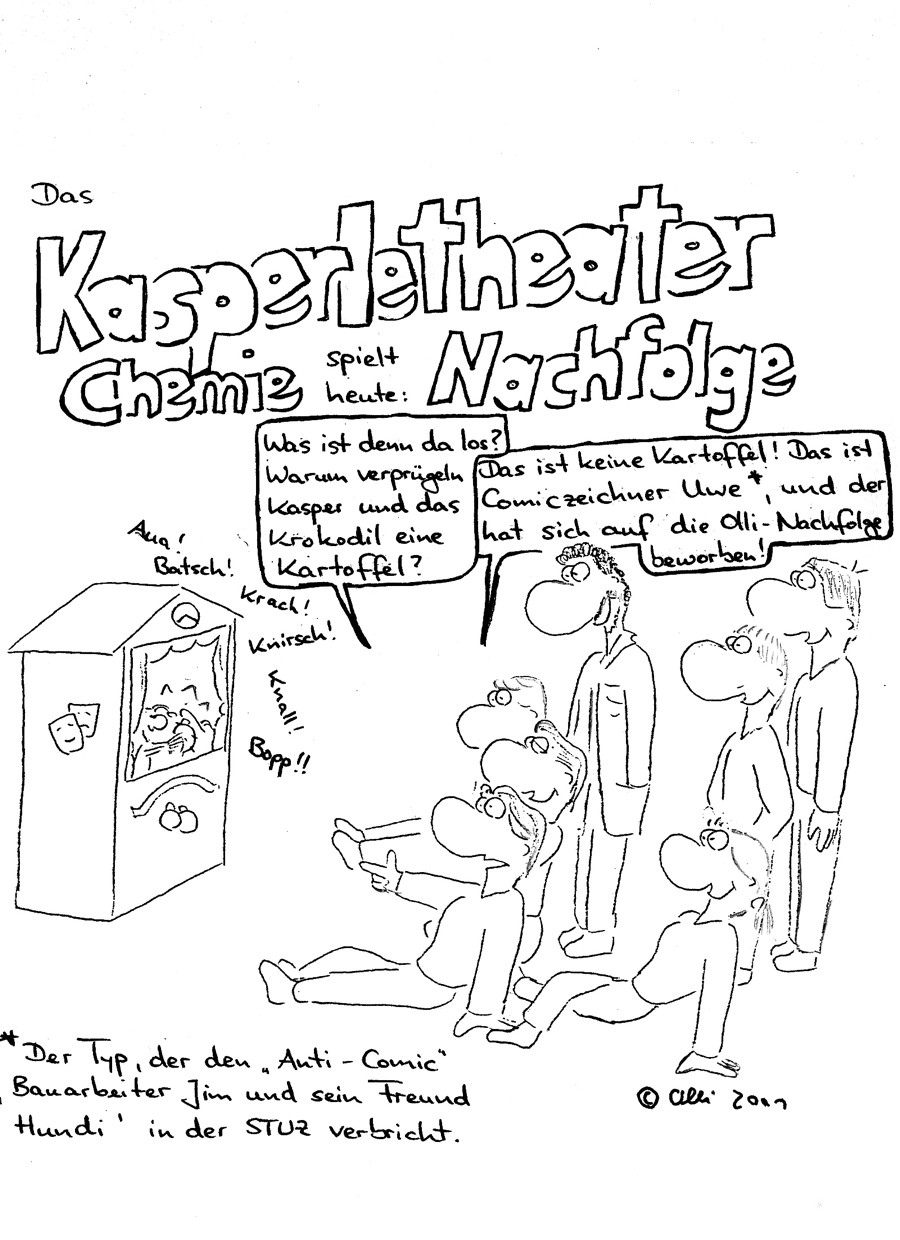 Das
Kasperletheater
Chemie spielt heute: Nachfolge
Was ist denn da los?
Warum verprügeln
Kasper und das
Krokodil eine
Kartoffel?
Das ist keine Kartoffel! Das ist
Comiczeichner Uwe*, und der
hat sich auf die Olli-Nachfolge
beworben!
Aua!
Batsch!
Krach!
Knirsch!
Knall!
Bopp!!
* Der Typ, der den „Anti-Comic“
‚Bauarbeiter Jim und sein Freund
Hundi' in der STUZ verbricht.
© Olli 2001